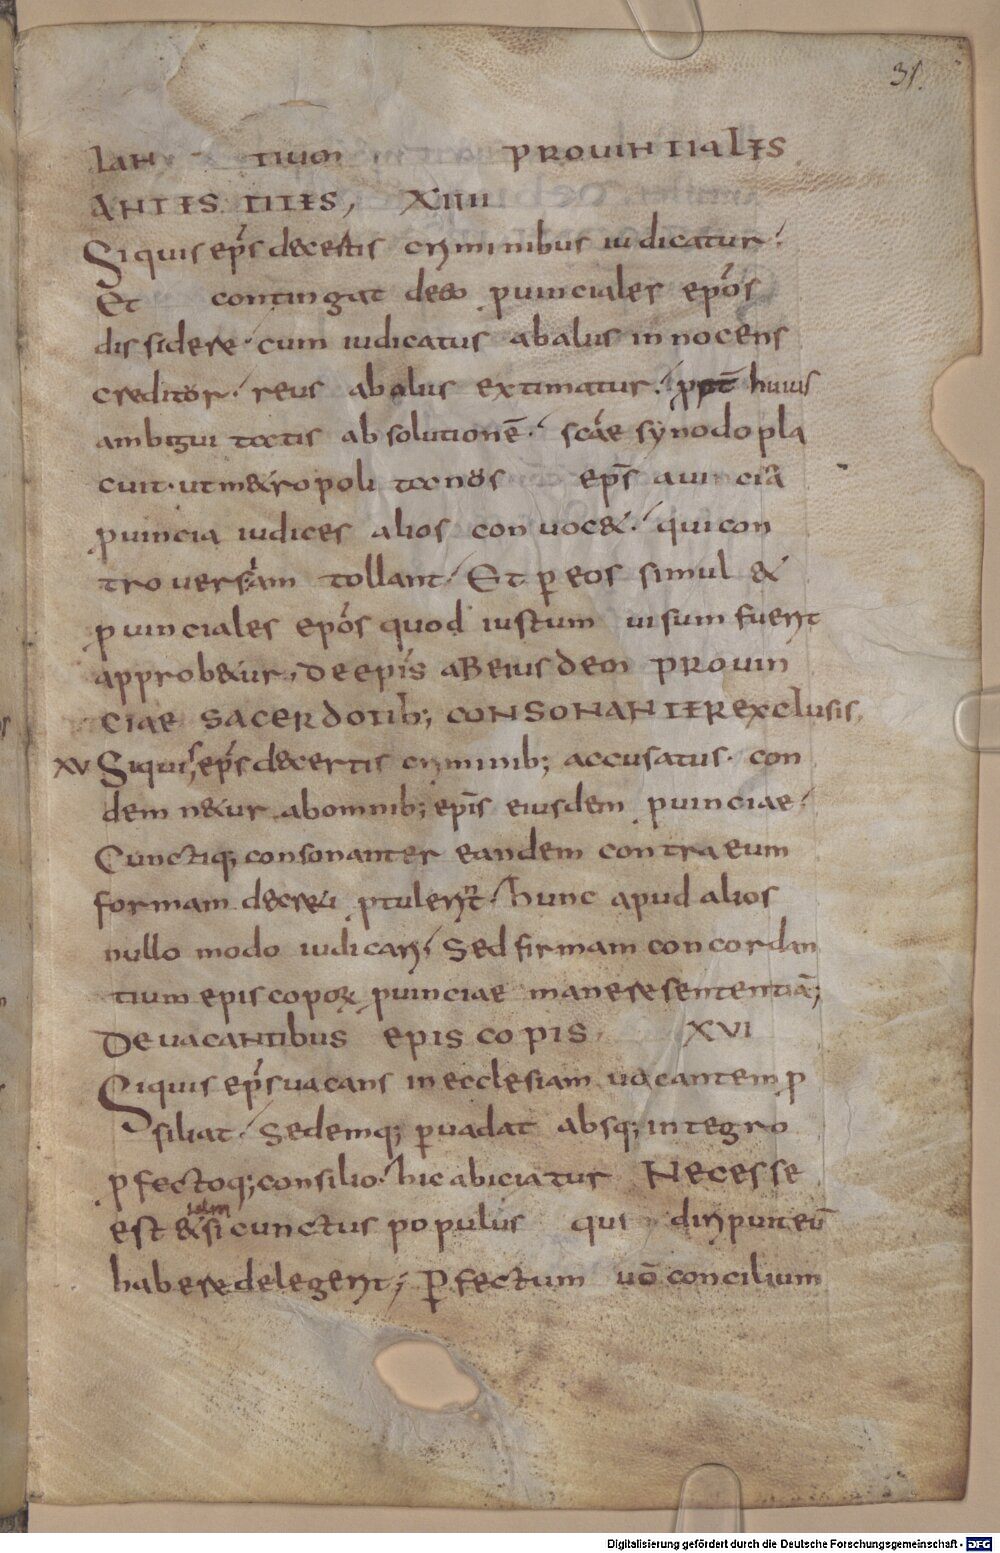 31.
LAN TIUM PROUINTIALES
ANTESTITES, XIIII
Siquis ep̅s de certis criminibus iudicatur.
Et contingat de eo puinciales epo̅s
dissidere. cum iudicatus ab alus innocens
creditor. reus ab alus extimatur. huius
ambigui totius absolutionē. sc̅ae synodo pla
cuit. ut metropolitanos ep̅s
puincia iudices alios conuocet. qui con
trouersiam tollant. Et p eos simul et
puinciales epo̅s quod iustum uisum fuerit
approbetur, De epi̅s ab eiusdem prouin
ciae sacerdotib; consonanter exclusis,
XV Siquis ep̅s de certis criminib; accusatus. con
demnetur ab omnib; epi̅s eiusdem puinciae.
Cunctiq; consonanter eandem contra eum
formam decreti ptulerint. hunc apud alios
nullo modo iudicari. Sed firmam concordan
tium episcopor puinciae manere sententiā;
De uacantibus episcopis, XVI
Siquis ep̅s uacans in ecclesiam uacantem p
siliat. sedemq; puadat absq; integro
pfectoq; consilio. hic abiciatur Necesse
est et si cunctus populus qui diripuit eū
habere delegerit; Pfectum uō concilium
Digitalisierung gefördert durch die Deutsche Forschungsgemeinschaft - DFG